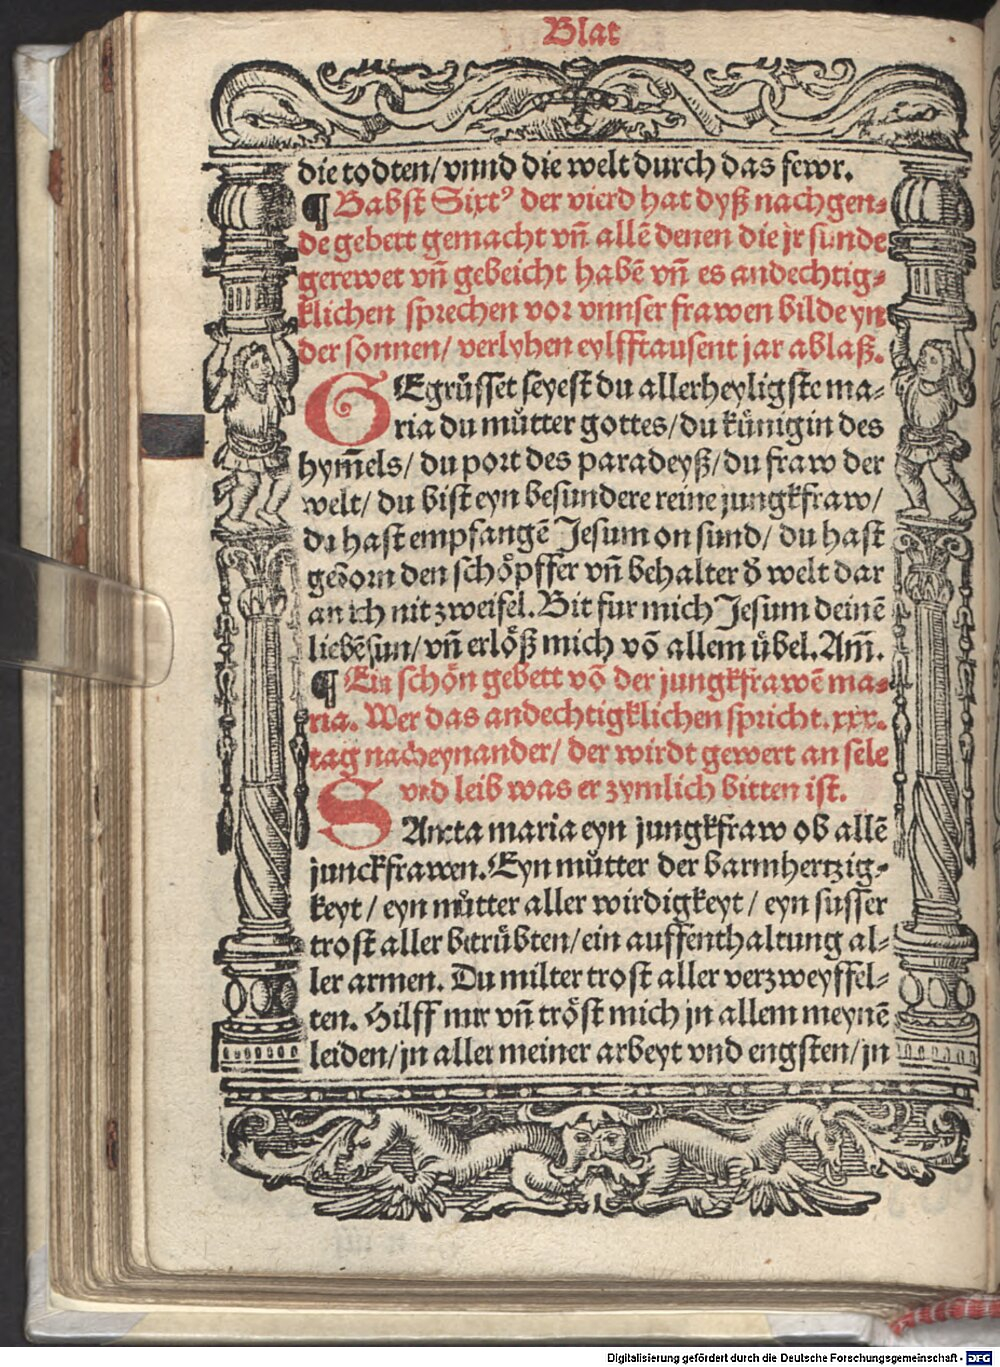 Blat
die todten/ vnnd die welt durch das fewr.
¶ Babst Sixtꝰ der vierd hat dyß nachgen⸗
de gebett gemacht vñ allē denen die jr sunde
gerewet vñ gebeicht habē vñ es andechtig⸗
klichen sprechen vor vnnser frawen bilde yn
der sonnen/ verlyhen eylfftausent jar ablaß.
GEgrüsset seyest du allerheyligste ma⸗
ria du můtter gottes/ du künigin des
hym̄els/ du port des paradeyß/ du fraw der
welt/ du bist eyn besundere reine jungkfraw/
du hast empfangē Jesum on sund/ du hast
geborn den schöpffer vñ behalter d̄ welt dar
an ich nit zweifel. Bit fur mich Jesum deinē
liebēsun/ vñ erlöß mich vō allem übel. Am̄.
¶ Ein schön gebett vō der jungkfrawē ma⸗
ria. Wer das andechtigklichen spricht .xxx.
tag nacheynander/ der wirdt gewert an sele
vnd leib was er zymlich bitten ist.
SAncta maria eyn jungkfraw ob allē
junckfrawen. Eyn můtter der barmhertzig⸗
keyt / eyn můtter aller wirdigkeyt / eyn susser
trost aller betrübten/ ein auffenthaltung al⸗
ler armen. Du milter trost aller verzweyffel⸗
ten. Hilff mir vñ tröst mich jn allem meynē
leiden/ jn aller meiner arbeyt vnd engsten/ jn
Digitalisierung gefördert durch die Deutsche Forschungsgemeinschaft - DFG